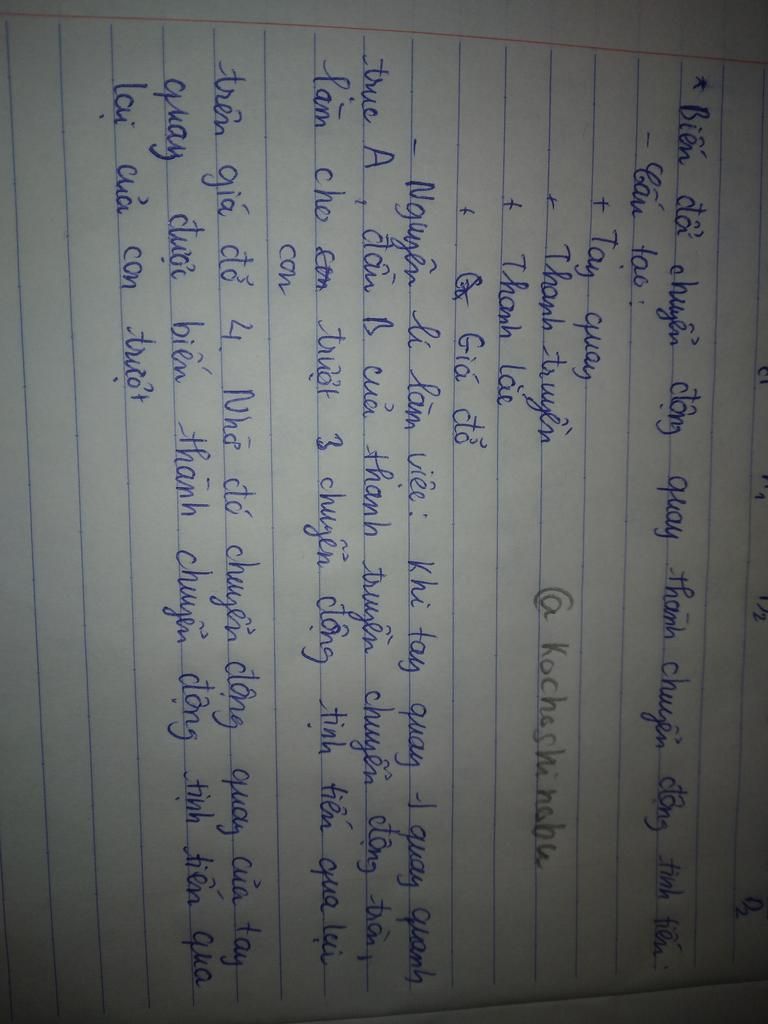 * Biến đổi chuyển động quay thành chuyển động tịnh tiến
- Cấu tạo:
+ Tay quay
+ Thanh truyền
+ Thanh lắc
+ Giá đỡ
@kochoshinobu
- Nguyên lí làm việc: Khi tay quay 1 quay quanh
trục A, đầu B của thanh truyền chuyển động tròn,
làm cho con trượt 3 chuyển động tịnh tiến qua lại
con
trên giá đỡ 4. Nhờ đó chuyển động quay của tay
quay được biến thành chuyển động tịnh tiến qua
lại của con trượt